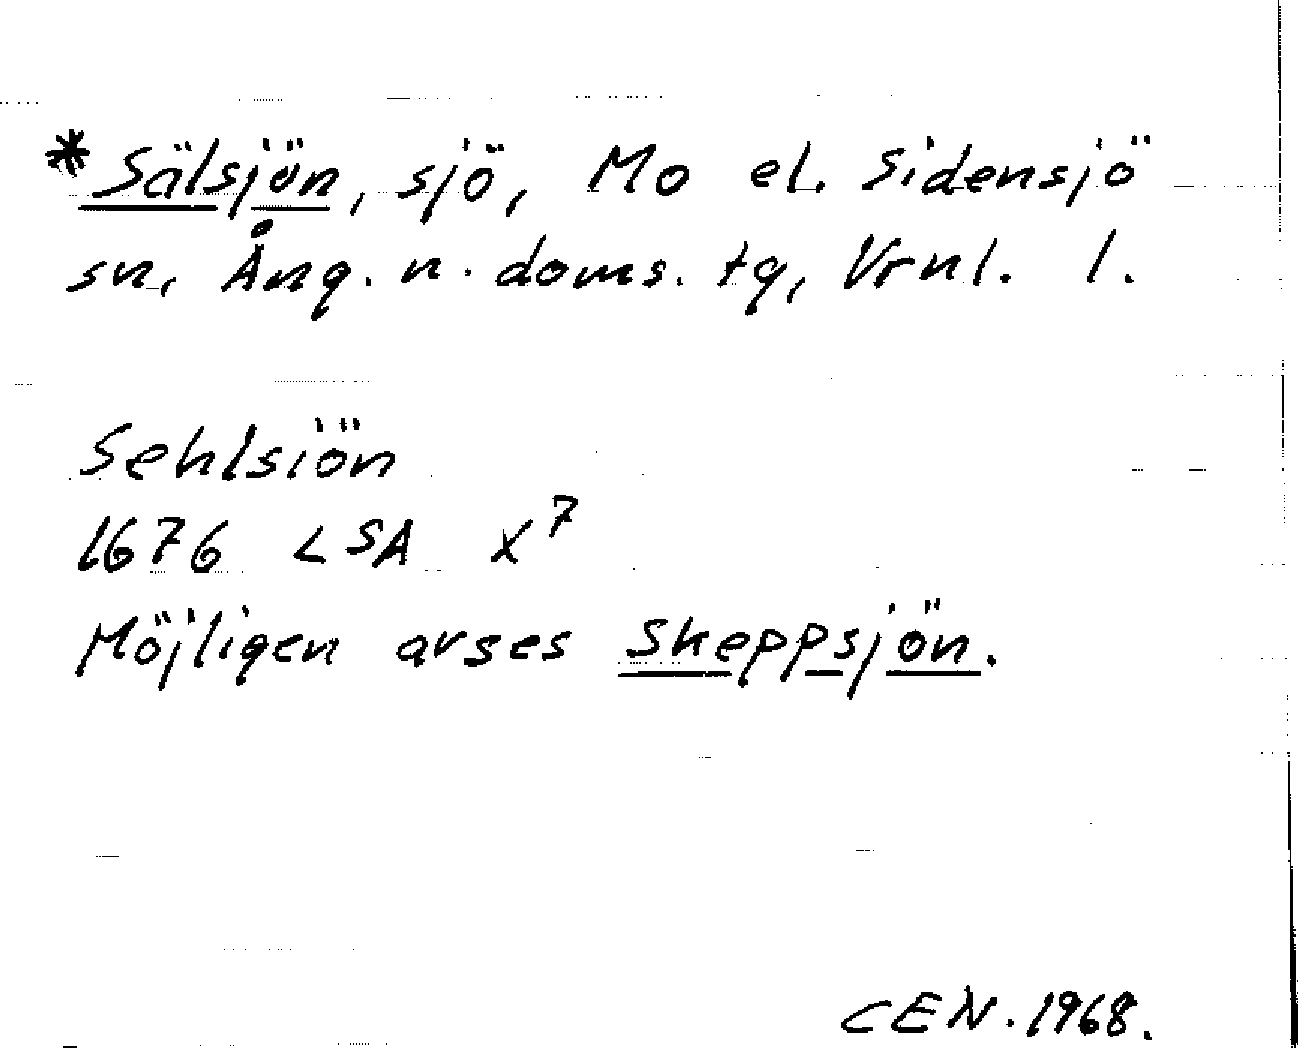 *Sälsjön, sjö, Mo el. Sidensjö
sn, Ång. n. doms. tg, Vrnl. l.
Sehlsiön
1676 LSA X7
Möjligen avses Skeppsjön.
CEN. 1968.